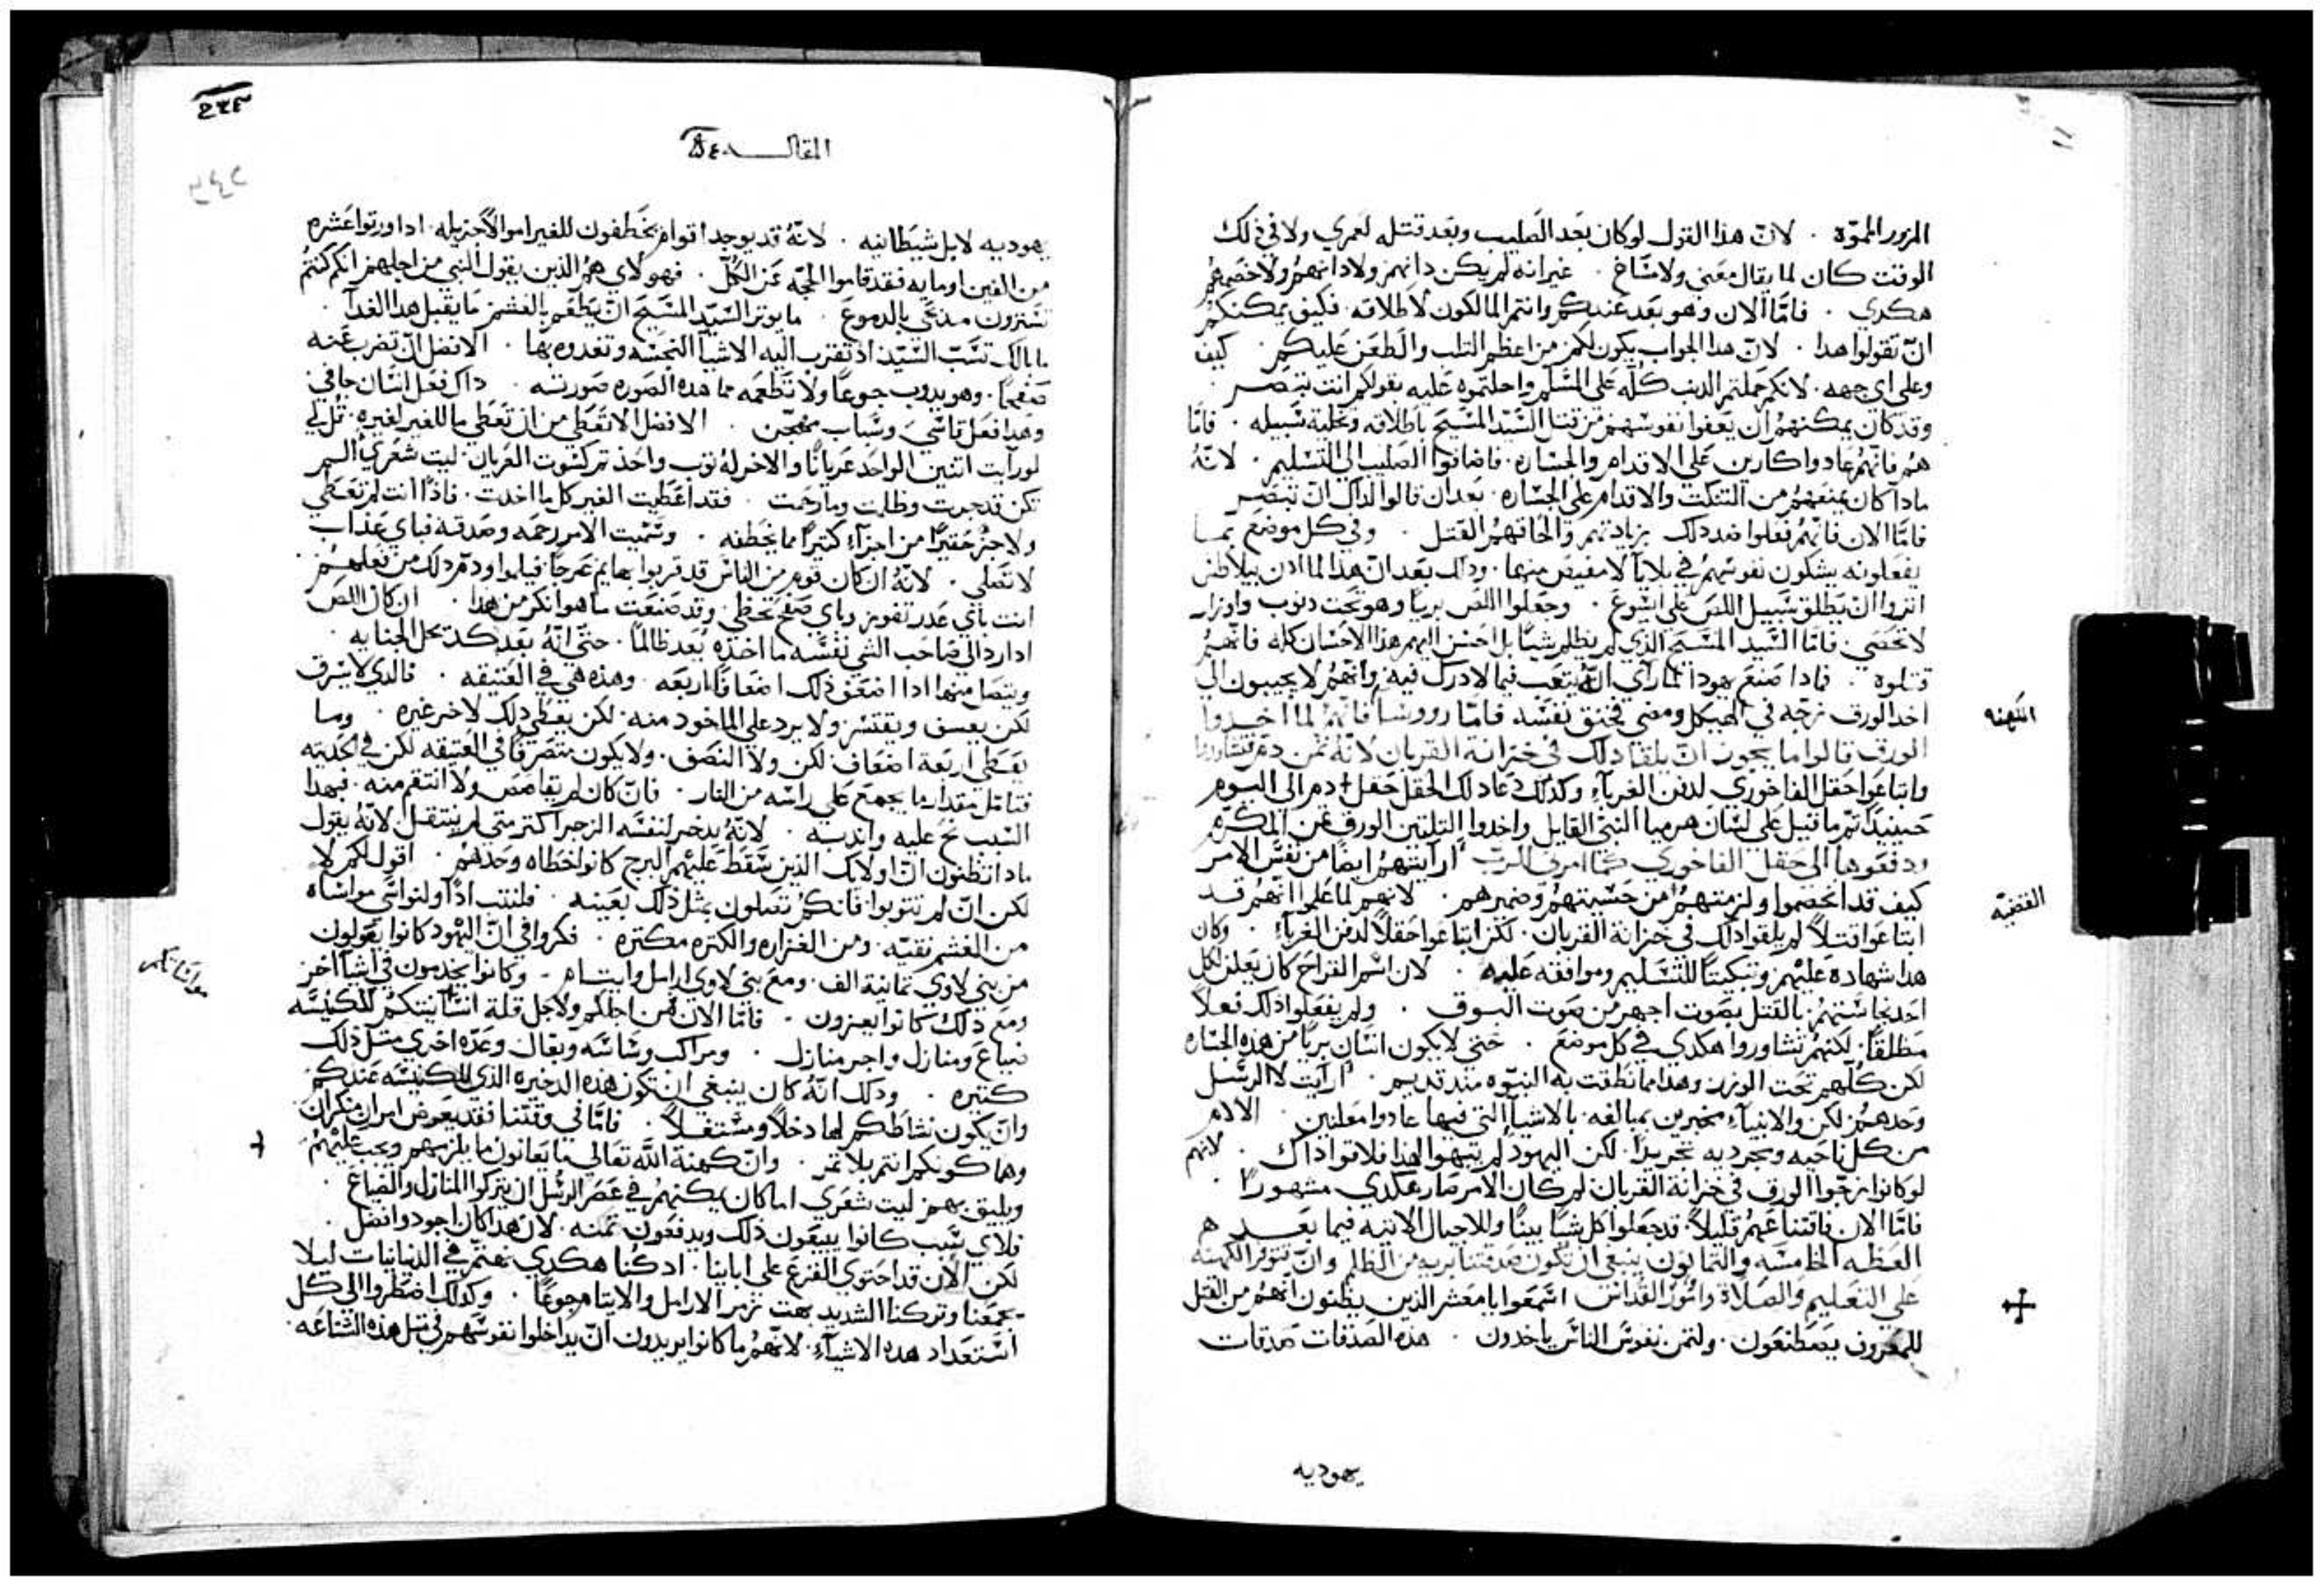 المزور المموّه . لانّ هذا القول لو كان بعد الصليب وبعد قتله لعمري ولا في ذلك
الوقت كان لما يقال معني ولا شاخ . غير انه لم يكن دانهم ولا دانهم ولا خصمهم
هكدي . فامّا الان وهو بعد عندكم وانتم المالكون لاطلاقه . فكيف يمكنكم
انّ تقولوا هدا . لانّ هدا الجواب يكون لكم من اعظم التلب والطعن عليكم . كيف
وعلي اي جهه . لانكم حملتم الدنب كلّه علي المسلم واحلتموه عليه بقولكم انت تبصر .
وقد كان يمكنهم ان يعفوا نفوسهم من قتل السّيد المسّيح باطلاقه وتخلية سّبيله . فامّا
هم فانّهم عادوا كارين علي الاقدام والجسّاره . فاضافوا الصليب الي التسليم . لانّه
مادا كان يمنعهم من التنكث والاقدام علي الجسّاره . بعد ان قالوا لداك انّ تبصر
فامّا الان فانّهم فعلوا ضد دلك بزيادتهم والحاقهم القتل . وفي كل موضع بما
يفعلونه يشكون نفوسّهم في بلايا لا مفيض منها . ودلك بعد انّ هدا لما ادن بيلاطس
اثروا انّ يطلق سّبيل اللص علي ايسّوع . وجعلوا اللص بريا وهو تحت دنوب واوزار
لا تحصي . فامّا السّيد المسّيح الذي لم يظلم شيّا بل احسن اليهم هذا الاحسّان كله فانّهم
قتلوه . فمادا صنع يهودا لما راي انّه يتعب فيما لا درك فيه وانّهم لا يجيبون الي
اخد الورق زجّه في الهيكل ومضي فخنق نفسّه فامّا روسّا فانّهم لما اخدوا
الكهنه
الورق قالوا ما يجوز انّ يلقا دلك في خزانة القربان لانّه ثمن دم فتشاوروا
وابتاعوا حقل الفاخوري لدفن الغربآء وكذلك دعا دلك الحقل حقل دم الي اليوم
حينيدًا تم ما قيل علي لسّان هرميا النبي القايل واخدوا التلتين الورق ثمن المكرم
ودفعوها الي حقل الفاخوري كما امرني الربّ ارايتهم ايضًا من نفسّ الامر
كيف قد انخصموا ولزمتهم من حسّيتهم وضميرهم . لانهم لما علموا انّهم قد
القضيّه
ابتاعوا قتلاً لم يلقوا دلك في خزانة القربان . لكن ابتاعوا حقلاً لدفن الغربآء . وكان
هدا شهاده عليهم وتبكيتًا للتسّليم وموافقته عليه . لان اسّم القراح كان يعلن لكل
احد نجاسّتهم بالقتل بصوت اجهر من صوت البوق . ولم يفعلوا دلك فعلاً
مطلقًا . لكنهم تشاوروا هكدي في كل موضع . حتي لا يكون انسّان بريًّا من هذه الجسّاره
لكن كلّهم تحت الوزر . وهدا مما نطقت به النبوه مند قديم . ارايت لا الرسّل
وحدهم لكن والانبيآء مخبرين بمبالغه بالاشيآ التي فيها عادوا معلنين . الالام
من كل ناحيه ومجرديه تجريدًا . لكن اليهود لم ينتبهوا لهذا فلا قوا داك . لانهم
لو كانوا زجّوا الورق في خزانة القربان لم كان الامر صار هكدي مشهورًا .
فامّا الان فاقتناعهم قليلاً قد جعلوا كل شيّا بينًا وللاجيال الاتيه فيما بعد
العظه الخامسّه والتمانون ينبغي ان تكون صدقتنا بريه من الظلم وانّ تتوفر الكهنه
علي التعليم والصلاة وامور القداسّ اسّمعوا يا معشر الدين يظنون انّهم من القتل
للمعروف يصطنعون . ولثمن نفوسّ الناسّ ياخدون . هده الصدقات صدقات
يهوديه
المقاله
يهوديه لا بل شيطانيه . لانّه قد يوجد اقوام يخطفون للغير اموالاً جزيله . ادا وزعوا عشره
من الفين او مايه فقد قاموا الحجّه عن الكلّ . فهولاي هم الذين يقول النبي من اجلهم انكم كنتم
تسّترون مدبحي بالدموع . ما يوثر السّيد المسّيح انّ يطعم بالغشم ما يقبل هدا الغدآ .
ما بالك تسّب السّيد اذ تقرب اليه الاشيآ النجسّه وتغدوه بها . الافضل انّ تضرب عنه
صفحًا . وهو يدوب جوعًا ولا تطعمه مما هده الصوره صورته . داك فعل انسّان جافي
وهدا فعل قاسّي وسّباب مهجّن . الافضل الا تعطي من ان تعطي ما للغير لغيره . قل لي
لو رايت اثنين الواحد عريانًا والاخر له ثوب واخذ تم كسّوت العريان . ليت شعري الم
تكن قد جرت وظلمت وما رحمت . فقد اعطيت الغير كل ما اخدت . فاذًا انت لم تعطي
ولا جزء حقيرًا من اجزآء كثيرًا مما تخطفه . وسّميت الامر رحمه وصدقه فباي عذاب
لا تصلي . لانّه ان كان قوم من الناسّ قد قربوا بهايم عرجًا فيلموا ودمّ دلك من فعلهم .
انت باي عدر تفوز وباي صفح تحظي . وقد صنعت ما هو انكر من هدا . ان كان اللص
ادا رد الي صاحب الشي نفسّه ما اخذه يعد ظالمًا . حتي انّه بعد كد تحل الجنايه .
ويتنصل منها ادا اضعف ذلك اضعافًا اربعه . وهذه هي في العتيقه . فالدي لا يسّرق
لكن يعسف ويقتسّر ولا يرد علي الماخود منه . لكن يعطي دلك لاخر غيره . وما
يعطي اربعة اضعاف لكن ولا النصف . ولا يكون متصرفًا في العتيقه لكن في الحديثه
فتامل مقدار ما يجمع علي راسّه من النار . فانّ كان لم يقاصص ولا انتقم منه . فبهدا
السّبب نح عليه واندبه . لانّه يدخر لنفسّه الزجر اكتر متي لم ينتقل . لانّه يقول
مادا تظنون انّ اولايك الذين سّقط عليهم البرج كانوا خطاه وحدهم . اقول لكم لا
لكن انّ لم تتوبوا فانكم تقبلون بمثل ذلك بعينه . فلنتب اذًا ولنواسّي مواسّاه
من الغشم نقيّه . ومن الغزاره والكثره مكتره . فكروا في انّ اليهود كانوا يعولون
من بني لاوي ثمانية الف . ومع بني لاوي ارامل وايتام . وكانوا يخدمون في اشيآ اخر
ومع ذلك كانوا يعزون . فامّا الان فمن اجلكم ولاجل قلة انسّانيتكم للكنيسّه
ضياع ومنازل واجر منازل . ومراكب وسّاسّه وبغال وعدّه اخري مثل ذلك
كثيره . ودلك انّه كان ينبغي ان تكون هذه الدخيره الذي للكنيسّه عندكم
وانّ يكون نشاطكم لها دخلاً ومسّتغلاً . فامّا في وقتنا فقد يعرض امران منكران
وهما كونكم انتم بلا ثمر . وانّ كهنة الله تعالي ما يعانون ما يلزمهم ويجب عليهم
ويليق بهم ليت شعري اما كان يمكنهم في عصر الرسّل ان يتركوا المنازل والضياع .
فلاي سّبب كانوا يبيعون ذلك ويدفعون ثمنه . لان هدا كان اجود وافضل .
لكن الان قد احتوي الفزع علي ابآينا . اد كنّا هكدي نهتمّ في الدنيانيات ليلا
تجمعنا وتركنا الشديد بهت زمر الارامل والايتام جوعًا . وكدلك اضطروا الي كل
اسّتعداد هده الاشيآء . لانّهم ما كانوا يريدون انّ يداخلوا نفوسّهم في مثل هذه الشناعه .